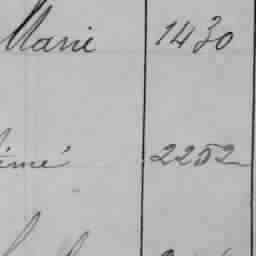 Marie 1430
imé 2252